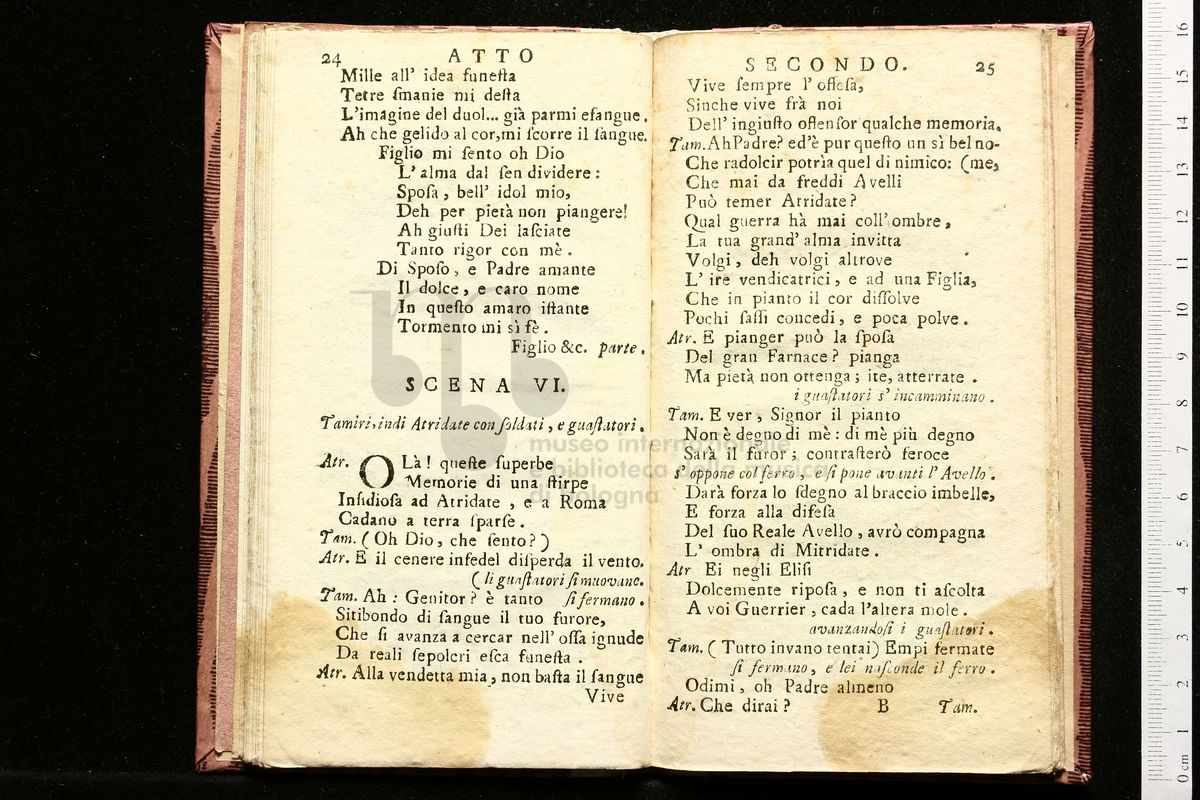 24 ATTO
Mille all' idea funeſta
Tetre ſmanie mi deſta
L'imagine del duol... già parmi eſangue.
Ah che gelido al cor,mi ſcorre il ſangue.
Figlio mi ſento oh Dio
L' alma dal ſen dividere :
Spoſa , bell' idol mio,
Deh per pietà non piangere!
Ah giuſti Dei laſciate
Tanto rigor con mè .
Di Spoſo , e Padre amante
Il dolce , e caro nome
In queſto amaro iſtante
Tormento mi sì fè .
Figlio &c. parte .
SCENA VI.
Tamiri, indi Atridate con ſoldati , e guaſtatori .
Atr. OLà ! queſte ſuperbe
Memorie di una ſtirpe
Inſidioſa ad Atridate , e a Roma
Cadano a terra ſparſe .
Tam. ( Oh Dio, che ſento ? )
Atr. E il cenere infedel diſperda il vento.
( li guaſtatori ſi muovano.
Tam. Ah : Genitor ? è tanto ſi fermano .
Sitibondo di ſangue il tuo furore,
Che ſi avanza a cercar nell' oſſa ignude
Da reali ſepolcri eſca funeſta .
Atr. Alla vendetta mia , non baſta il ſangue
Vive
SECONDO. 25
Vive ſempre l' offeſa,
Sinche vive frà noi
Dell' ingiuſto offenſor qualche memoria.
Tam. Ah Padre? ed'è pur queſto un sì bel no-
Che radolcir potrìa quel di nimico: (me,
Che mai da freddi Avelli
Può temer Atridate ?
Qual guerra hà mai coll' ombre ,
La tua grand' alma invitta
Volgi , deh volgi altrove
L' ire vendicatrici , e ad una Figlia,
Che in pianto il cor diſſolve
Pochi ſaſſi concedi , e poca polve .
Atr. E pianger può la ſpoſa
Del gran Farnace ? pianga
Ma pietà non ottenga ; ite, atterrate .
i guaſtatori s' incamminano .
Tam. E ver , Signor il pianto
Non è degno di mè : di mè più degno
Sarà il furor ; contraſterò feroce
s' oppone col ferro , e ſi pone avanti l' Avello .
Darà forza lo ſdegno al braccio imbelle,
E forza alla difeſa
Del ſuo Reale Avello , avrò compagna
L' ombra di Mitridate .
Atr Ei negli Eliſi
Dolcemente ripoſa , e non ti aſcolta
A voi Guerrier , cada l'altera mole .
avanzandoſi i guaſtatori .
Tam. ( Tutto invano tentai) Empi fermate
ſi fermano , e lei naſconde il ferro .
Odimi , oh Padre almeno
Atr. Che dirai ? B Tam.
museo internazionale
e biblioteca della musica
di bologna
0 cm 1 2 3 4 5 6 7 8 9 10 11 12 13 14 15 16